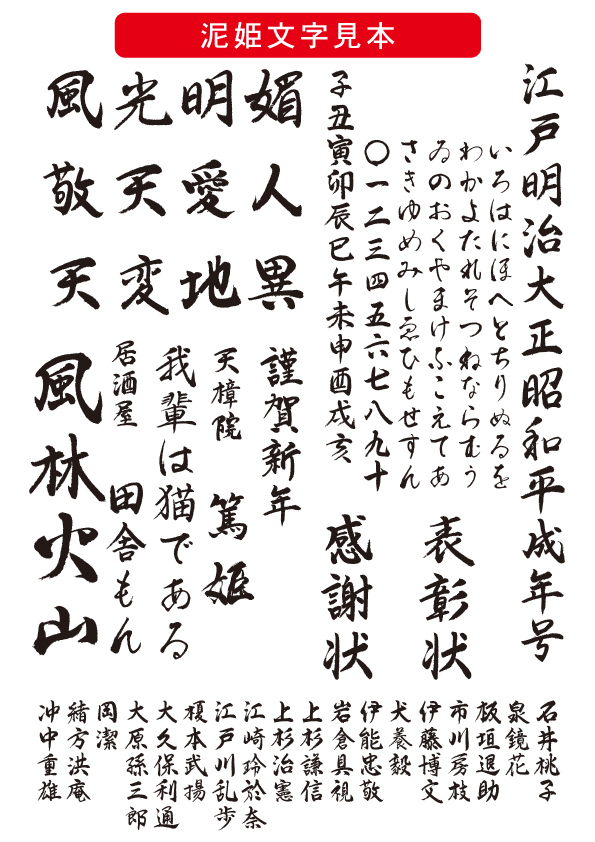 泥姫文字見本
江戸明治大正昭和平成年号
いろはにほへとちりぬるを
わかよたれそつねならむう
ゐのおくやまけふこえてあ
さきゆめみしゑひもせすん
〇一二三四五六七八九十
子丑寅卯辰巳午未申酉戌亥
表彰状
感謝状
媚人異
明愛地
光天変
風敬天
謹賀新年
天樟院 篤姫
我輩は猫である
居酒屋 田舎もん
風林火山
石井桃子
泉鏡花
板垣退助
市川房枝
伊藤博文
犬養毅
伊能忠敬
岩倉具視
上杉謙信
上杉治憲
江崎玲於奈
江戸川乱歩
榎本武揚
大久保利通
大原孫三郎
岡潔
緒方洪庵
沖中重雄